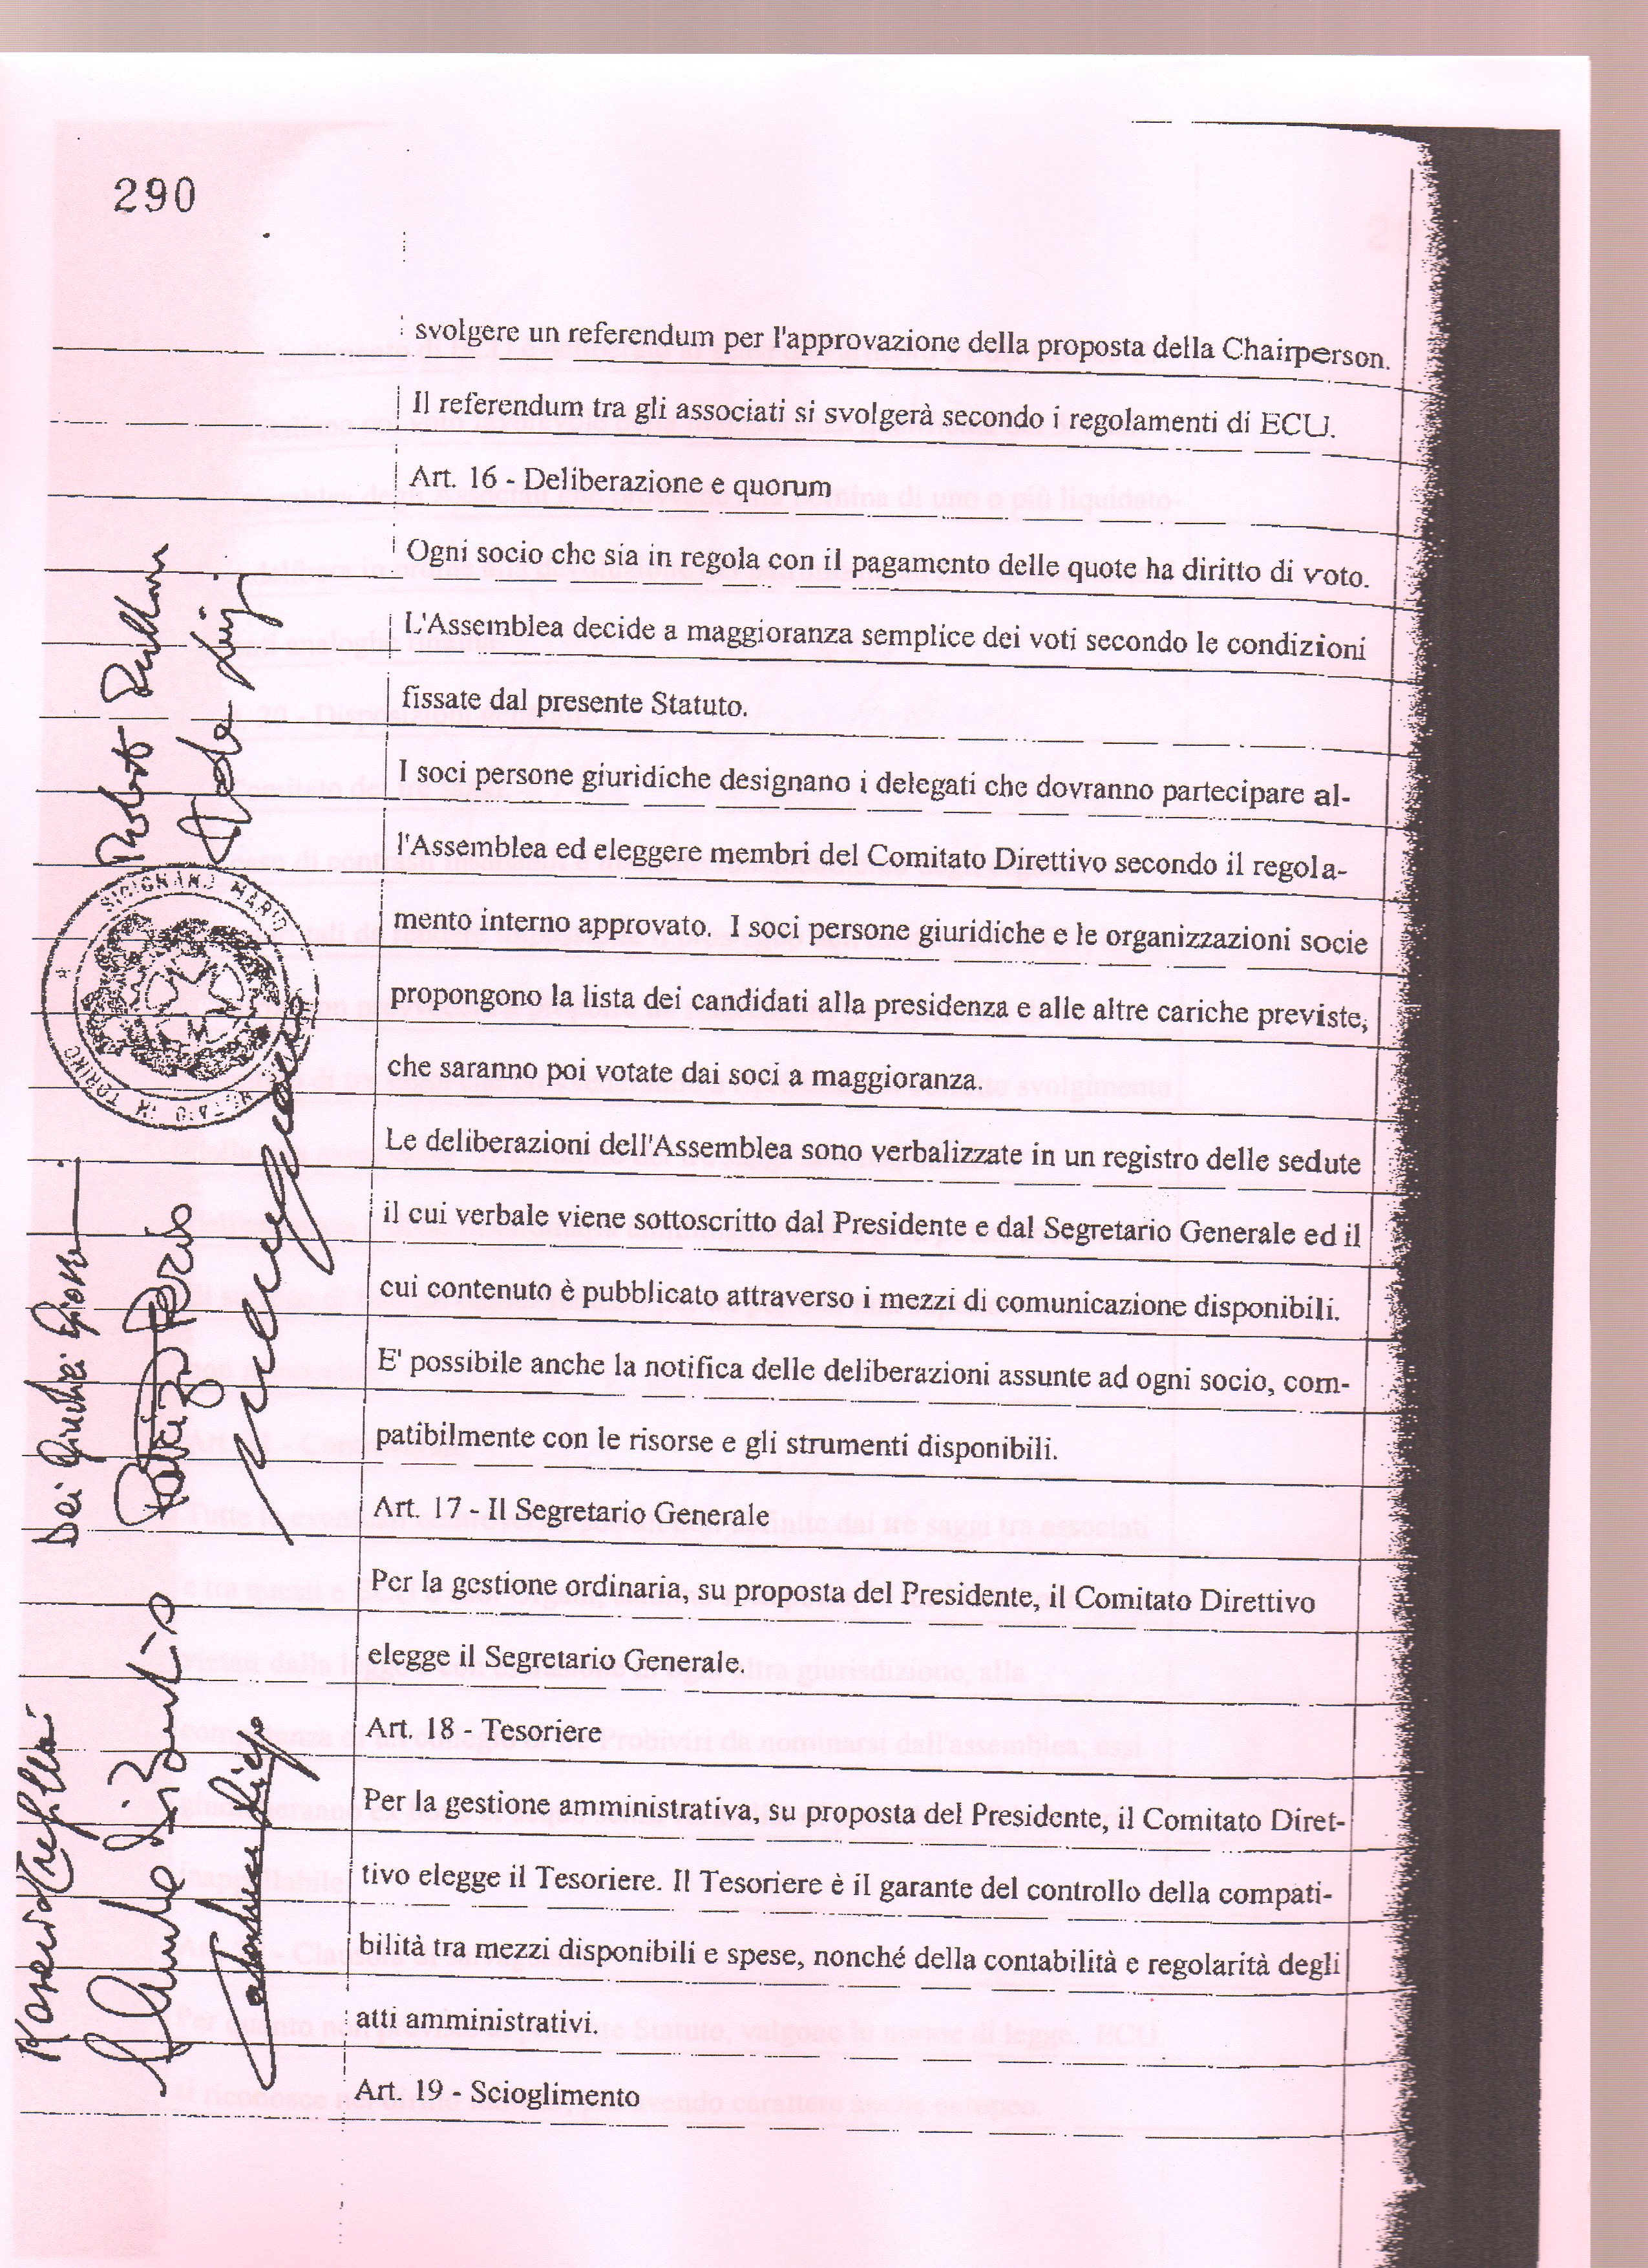 290
svolgere un referendum per l'approvazione della proposta della Chairperson.
Il referendum tra gli associati si svolgerà secondo i regolamenti di ECU.
Art. 16 - Deliberazione e quorum
Ogni socio che sia in regola con il pagamento delle quote ha diritto di voto.
L'Assemblea decide a maggioranza semplice dei voti secondo le condizioni
fissate dal presente Statuto.
I soci persone giuridiche designano i delegati che dovranno partecipare al-
l'Assemblea ed eleggere membri del Comitato Direttivo secondo il regola-
mento interno approvato. I soci persone giuridiche e le organizzazioni socie
propongono la lista dei candidati alla presidenza e alle altre cariche previste,
che saranno poi votate dai soci a maggioranza.
Le deliberazioni dell'Assemblea sono verbalizzate in un registro delle sedute
il cui verbale viene sottoscritto dal Presidente e dal Segretario Generale ed il
cui contenuto è pubblicato attraverso i mezzi di comunicazione disponibili.
E' possibile anche la notifica delle deliberazioni assunte ad ogni socio, com-
patibilmente con le risorse e gli strumenti disponibili.
Art. 17 - Il Segretario Generale
Per la gestione ordinaria, su proposta del Presidente, il Comitato Direttivo
elegge il Segretario Generale.
Art. 18 - Tesoriere
Per la gestione amministrativa, su proposta del Presidente, il Comitato Diret-
tivo elegge il Tesoriere. Il Tesoriere è il garante del controllo della compati-
bilità tra mezzi disponibili e spese, nonché della contabilità e regolarità degli
atti amministrativi.
Art. 19 - Scioglimento
Roberto
Luigi
MARIO
NOTAIO IN TORINO
Patrizio